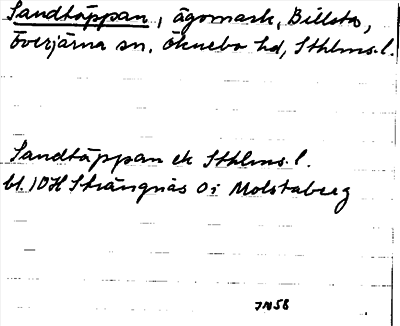 Sandtäppan, ägomark, Billsta,
Överjärna sn, Öknebo hd, Sthlms. l.
Sandtäppan ek Sthlms. l.
bl. 10H Strängnäs 0i Molstaberg
JN58